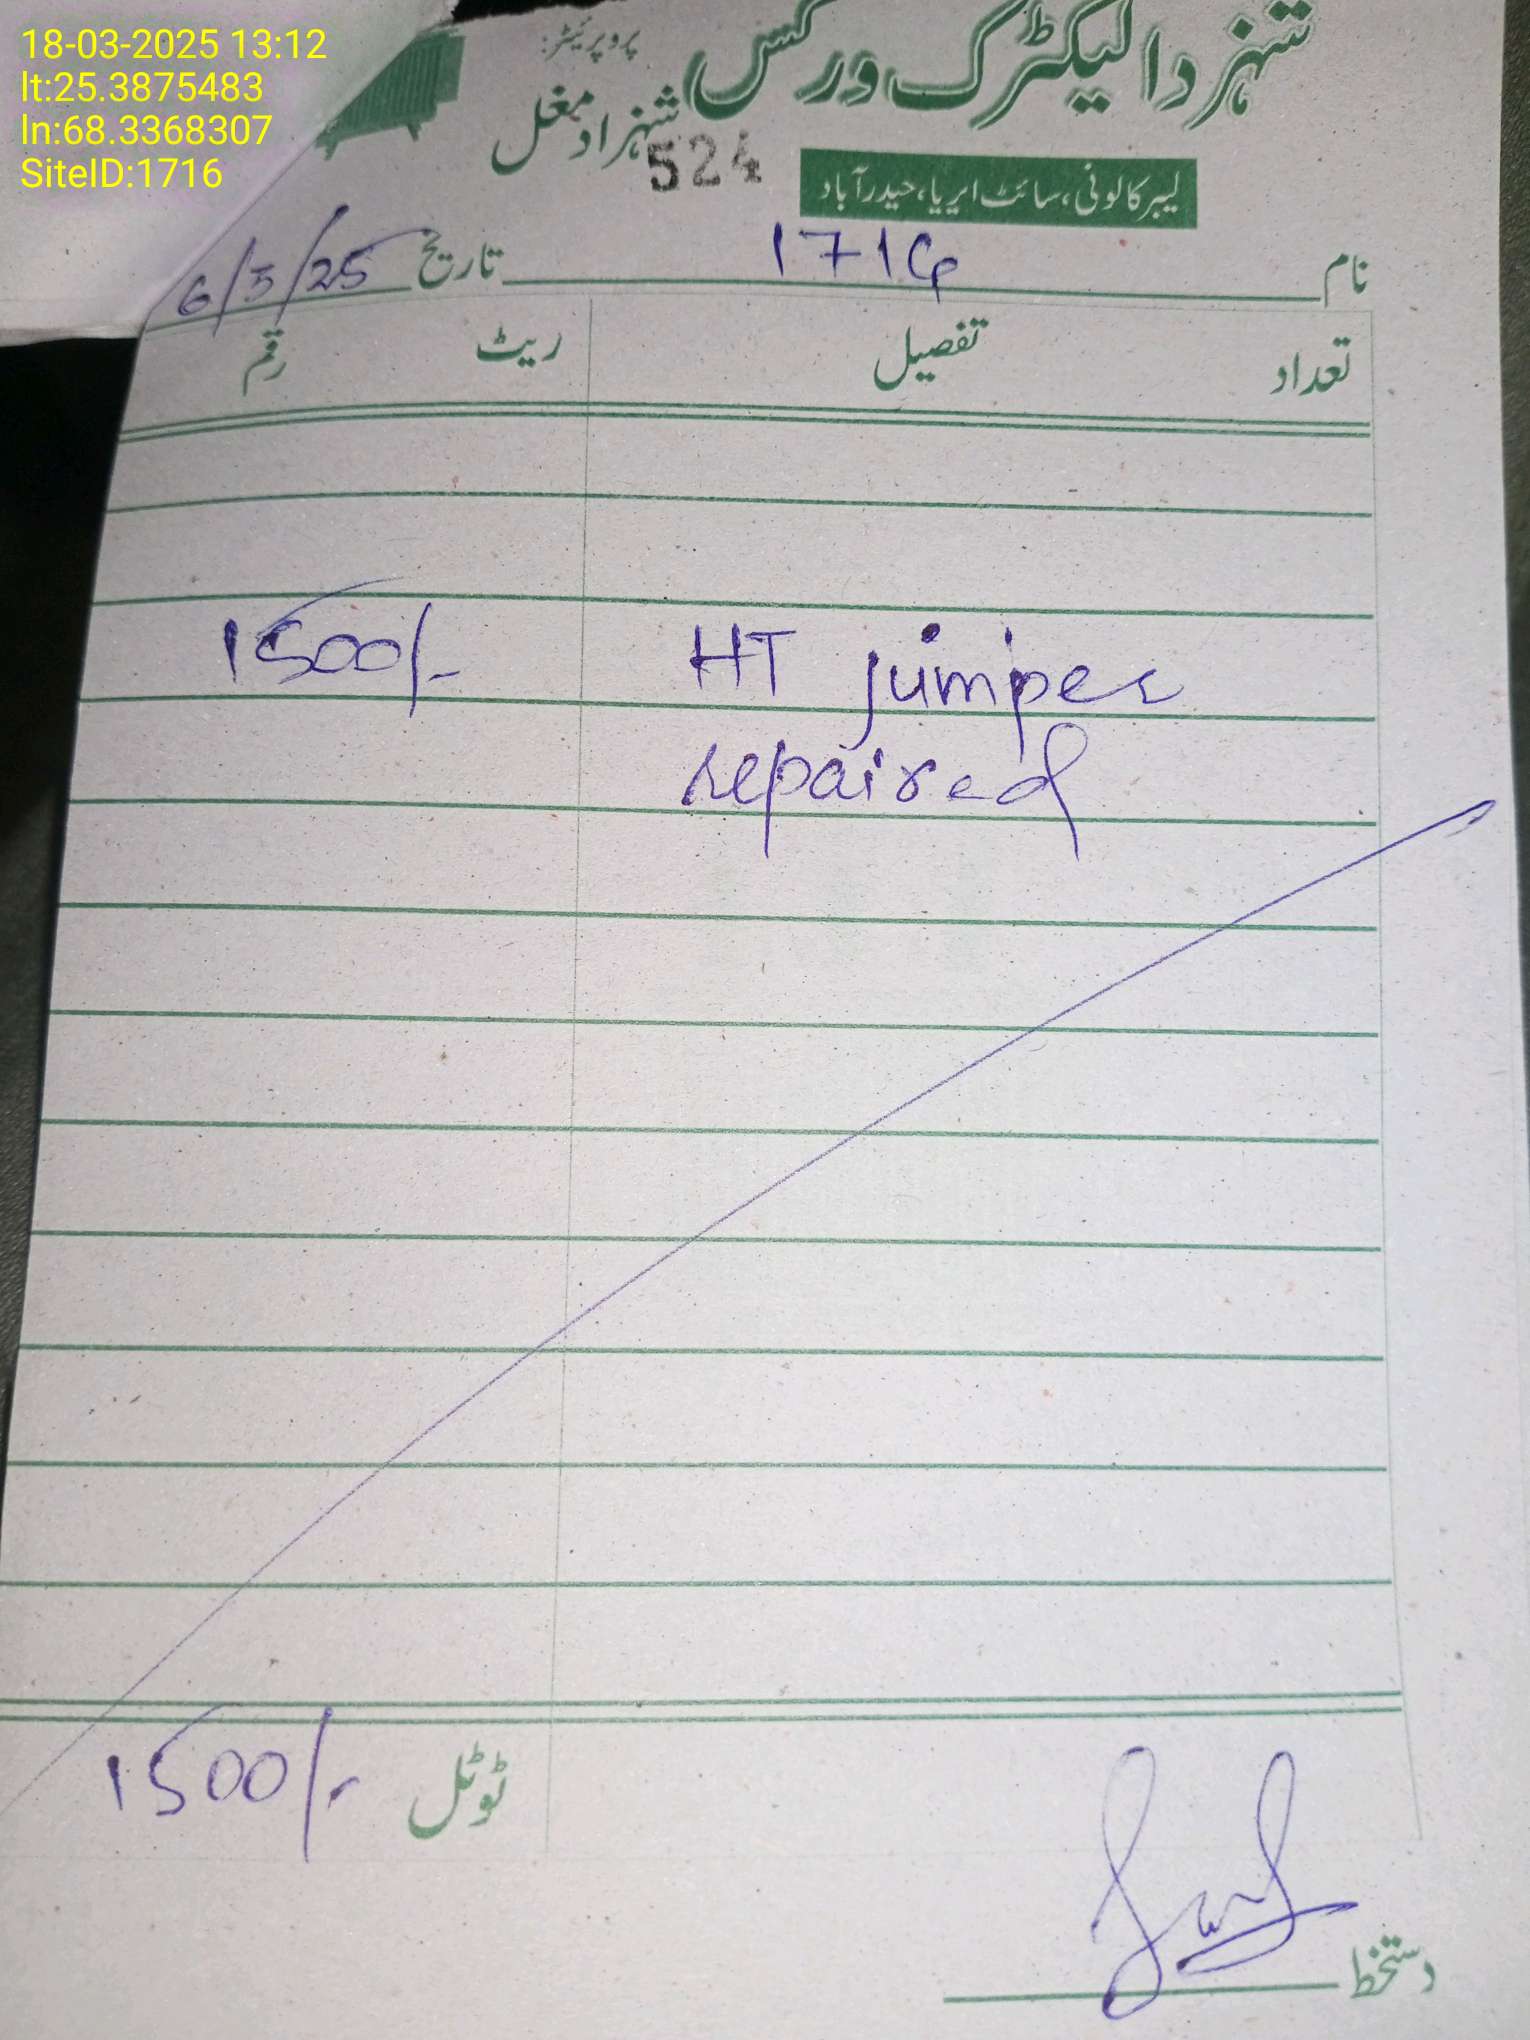 18-03-2025 13:12
lt:25.3875483
ln:68.3368307
SiteID:1716
شہزاد الیکٹرک ورکس
پروپرائیٹر:
شہزاد مغل
524
لیبر کالونی، سائٹ ایریا، حیدرآباد
نام 1716 تاریخ 6/3/25
تعداد تفصیل ریٹ رقم
HT jumper 1500/-
repaired
ٹوٹل 1500/-
دستخط